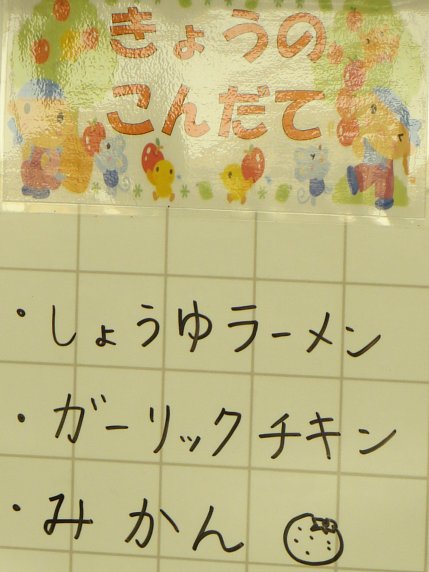 きょうの
こんだて
・しょうゆラーメン
・ガーリックチキン
・みかん